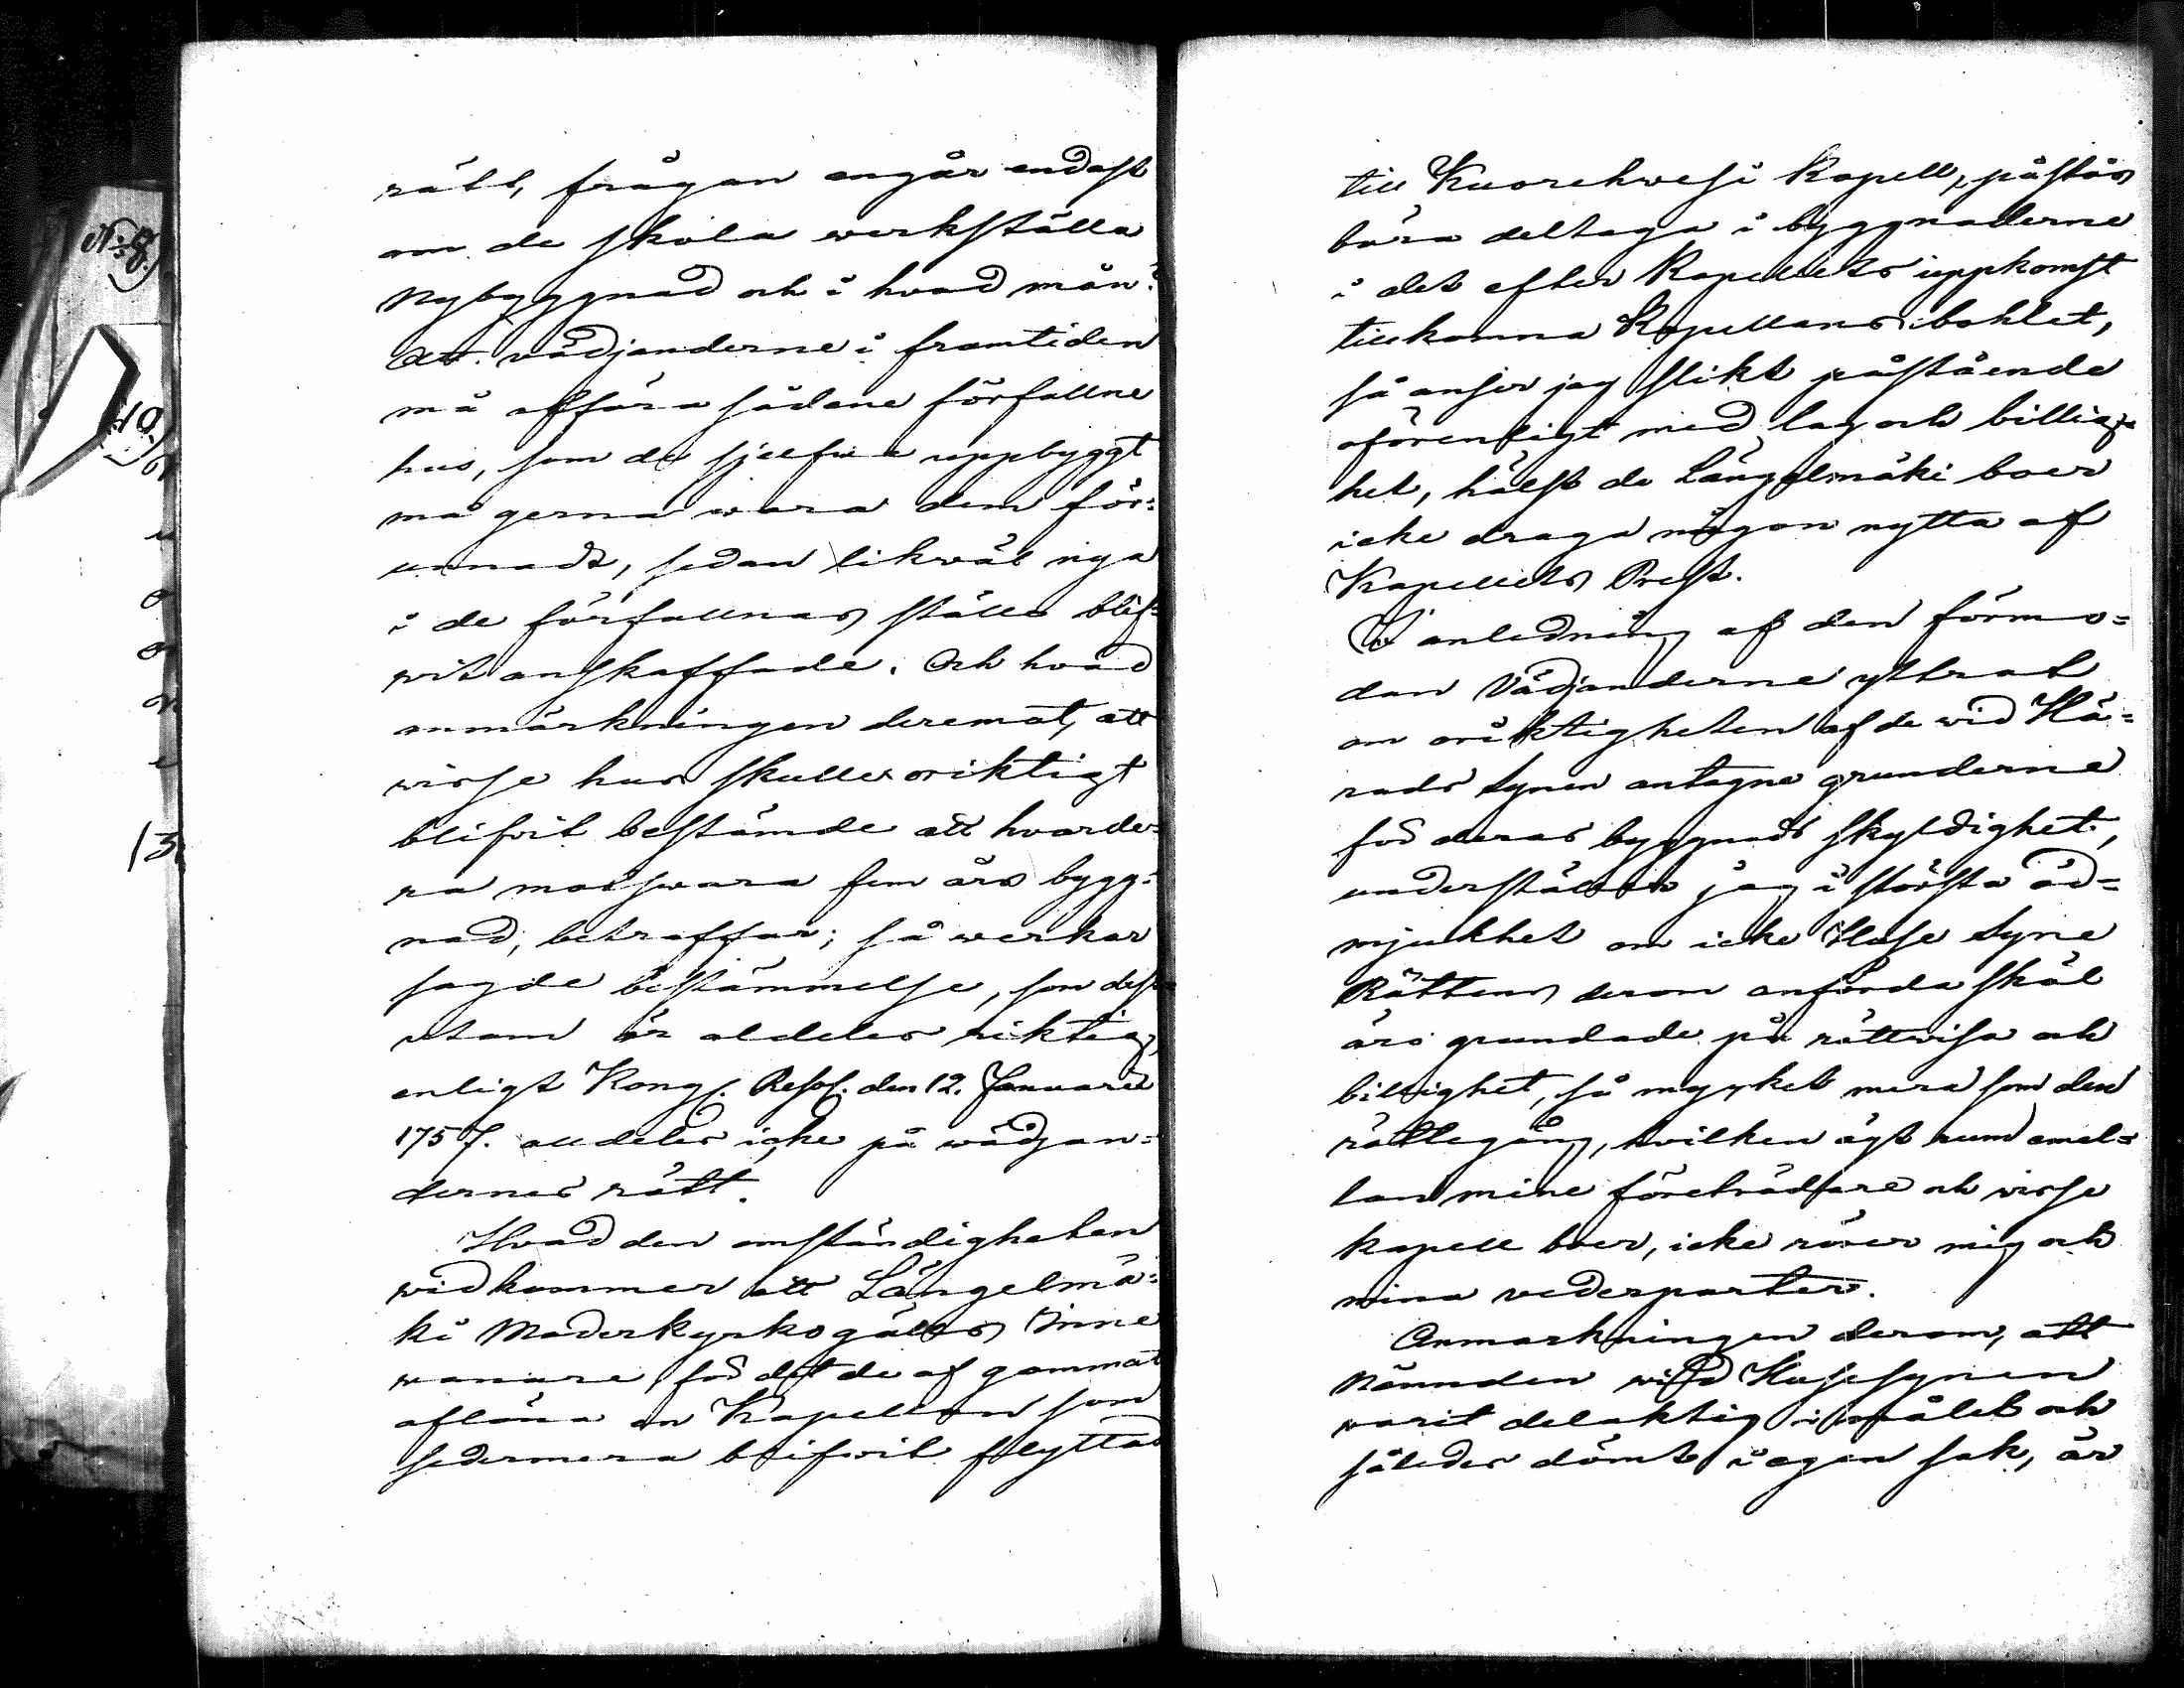 rätt, frågan angår endast
om de skola werkställa
Nybyggnad och i hvad mån?
Att vädjanderne i framtiden
må afföra sådane förfallne
hus, som de sjelfwe uppbyggt
må gerna wara dem för=
unnadt, sedan likwäl nya
i de förfallnas ställe blif=
wit anskaffade. Och hvad
anmärkningen deremot, att
wisse hus skulle oriktigt
blifwit bestämde att hvarde=
ra motswara fem års bygg=
nad, beträffar; så werkar
sagde bestämmelse, som dess=
utom är aldeles riktig,
enligt Kongs. Resol. den 12. Januarii
1757. alldeles icke på wädjan=
dernes rätt.
Hvad den omständigheten
widkommer att Längelmä=
ki Moderkyrkogälls Inne
wånare för det de af gammalt
aflöna en Kapellan som
sedermera blifwit flyttad
till Kuorehwesi Kapell, påstås
böra deltaga i byggnaderne
i det efter Kapellets uppkomst
tillkomna Kapellansbohlet,
så anser jag slikt påstående
oförenligt med lag och billig=
het, hälst de Längelmäki boer
icke draga någon nytta af
Kapellets Prest.
I anledning af den förmo=
dan Vädjanderne yttrat
om oriktigheten af de wid Hä=
rads Synen antagne grunderne
för deras byggnads skyldighet,
underställer jag i största öd=
mjukhet om icke Huse Syne
Rättens derom anförda skäl
äro grundade på rättwisa och
billighet, så mycket mera som den
rättegång, hvilken ägt rum emel=
lan mine företrädare och wisse
kapell boer, icke rörer mig och
mina wederparter.
Anmärkningen derom, att
Nämnden wid Husesynen
warit delaktig i målet och
således dömt i egen sak, är
N:o 8.)
10.)
13